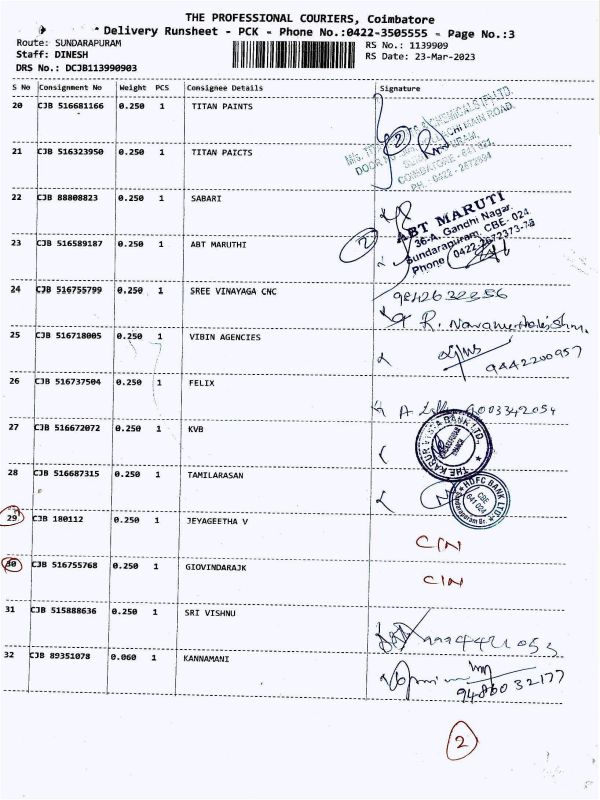 THE PROFESSIONAL COURIERS, Coimbatore
Delivery Runsheet - PCK - Phone No.:0422-3505555 - Page No.:3
Route: SUNDARAPURAM RS No.: 1139909
Staff: DINESH RS Date: 23-Mar-2023
DRS No.: DCJB113990903
S No Consignment No Weight PCS Consignee Details Signature
20 CJB 516681166 0.250 1 TITAN PAINTS
2
21 CJB 516323950 0.250 1 TITAN PAICTS
COIMBATORE - 641 021.
PH: 0422 - 2672594
22 CJB 88808823 0.250 1 SABARI
ABT MARUTI
36-A, Gandhi Nagar,
Sundarapuram, CBE-024
23 CJB 516589187 0.250 1 ABT MARUTHI 2
24 CJB 516755799 0.250 1 SREE VINAYAGA CNC 9842632356
25 CJB 516718005 0.250 1 VIBIN AGENCIES
9442200957
26 CJB 516737504 0.250 1 FELIX
9003342054
27 CJB 516672072 0.250 1 KVB
THE KARUR VYSYA BANK LTD.,
28 CJB 516687315 0.250 1 TAMILARASAN
HDFC BANK LTD.
CBE
641 024
29 CJB 180112 0.250 1 JEYAGEETHA V
CIN
30 CJB 516755768 0.250 1 GIOVINDARAJK
CIN
31 CJB 515888636 0.250 1 SRI VISHNU
32 CJB 89351078 0.060 1 KANNAMANI
9486032177
2